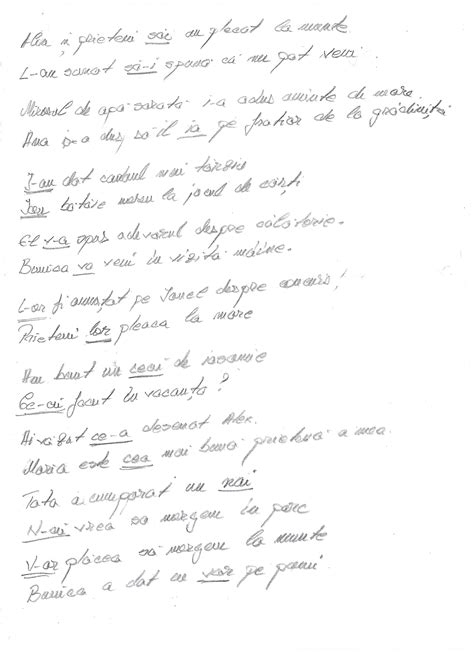 Alex și prietenii săi au plecat la munte
L-au sunat să-i spună că nu pot veni.
Mirosul de apă sărată i-a adus aminte de mare.
Ana s-a dus să îl ia pe frățior de la grădiniță
I-au dat cadoul mai târziu
Iau bătăie mereu la jocul de cărți
El v-a spus adevărul despre călătorie.
Bunica va veni în vizită mâine.
L-or fi anunțat pe Ionel despre concurs!
Prietenii lor pleacă la mare
Am băut un ceai de iasomie
Ce-ai făcut în vacanță?
Ai văzut ce-a desenat Alex.
Maria este cea mai bună prietenă a mea
Tata a cumpărat un nai
N-ai vrea să mergem în parc
V-ar plăcea să mergem la munte
Bunica a dat cu var pe pomi.